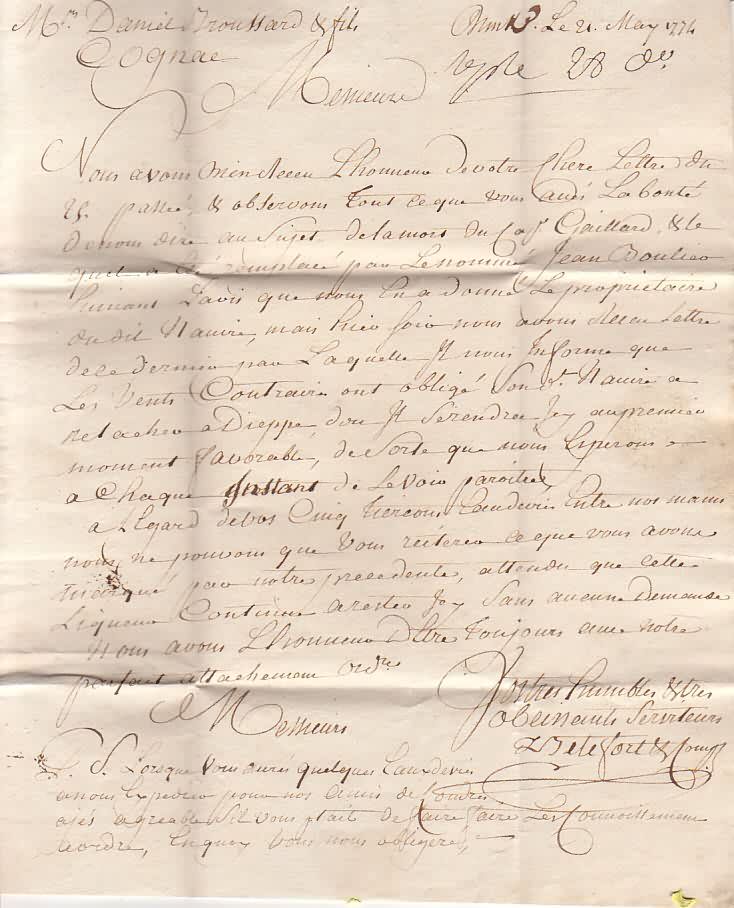 Mrs. Daniel Broussard & fils Le 21. May 1774
Cognac
Messieurs
Nous avons bien Receu Lhonneur de votre Chere Lettre du
passé, & observons tout ce que vous avés La bonté
de nous dire au Sujet de la mort du Cap. Gaillard, & le
quel a été remplacé par Le nommé Jean Boulieu
suivant L'avis que nous En a donné Le proprietaire
du dit Navire, mais hier soir nous avons Receu Lettre
de ce dernier par Laquelle Il nous Informe que
Les Vents Contraires ont obligé Son dt. Navire a
relacher a Dieppe, dou Il Serendra Icy au premier
moment favorable, de Sorte que nous Esperons
a Chaque Instant de Le voir paroitre,
a L'Egard de vos Cinq tierçons Eaudevie Entre nos mains
nous ne pouvons que Vous reiterer ce que vous avons
marqué par notre precedente, attendu que cette
Liqueur Continue a rester Icy Sans aucune Demande
Nous avons Lhonneur d'Etre toujours avec notre
parfait attachement
Messieurs
Vostres humbles & tres
obeissants Serviteurs
P. S. Lorsque Vous aurés quelques Eauxdevie
a nous Expedier pour nos Amis de Londres
ayés agreable Sil vous plait de faire faire Les Connoissement
a ordre, En quoy Vous nous obligerés,